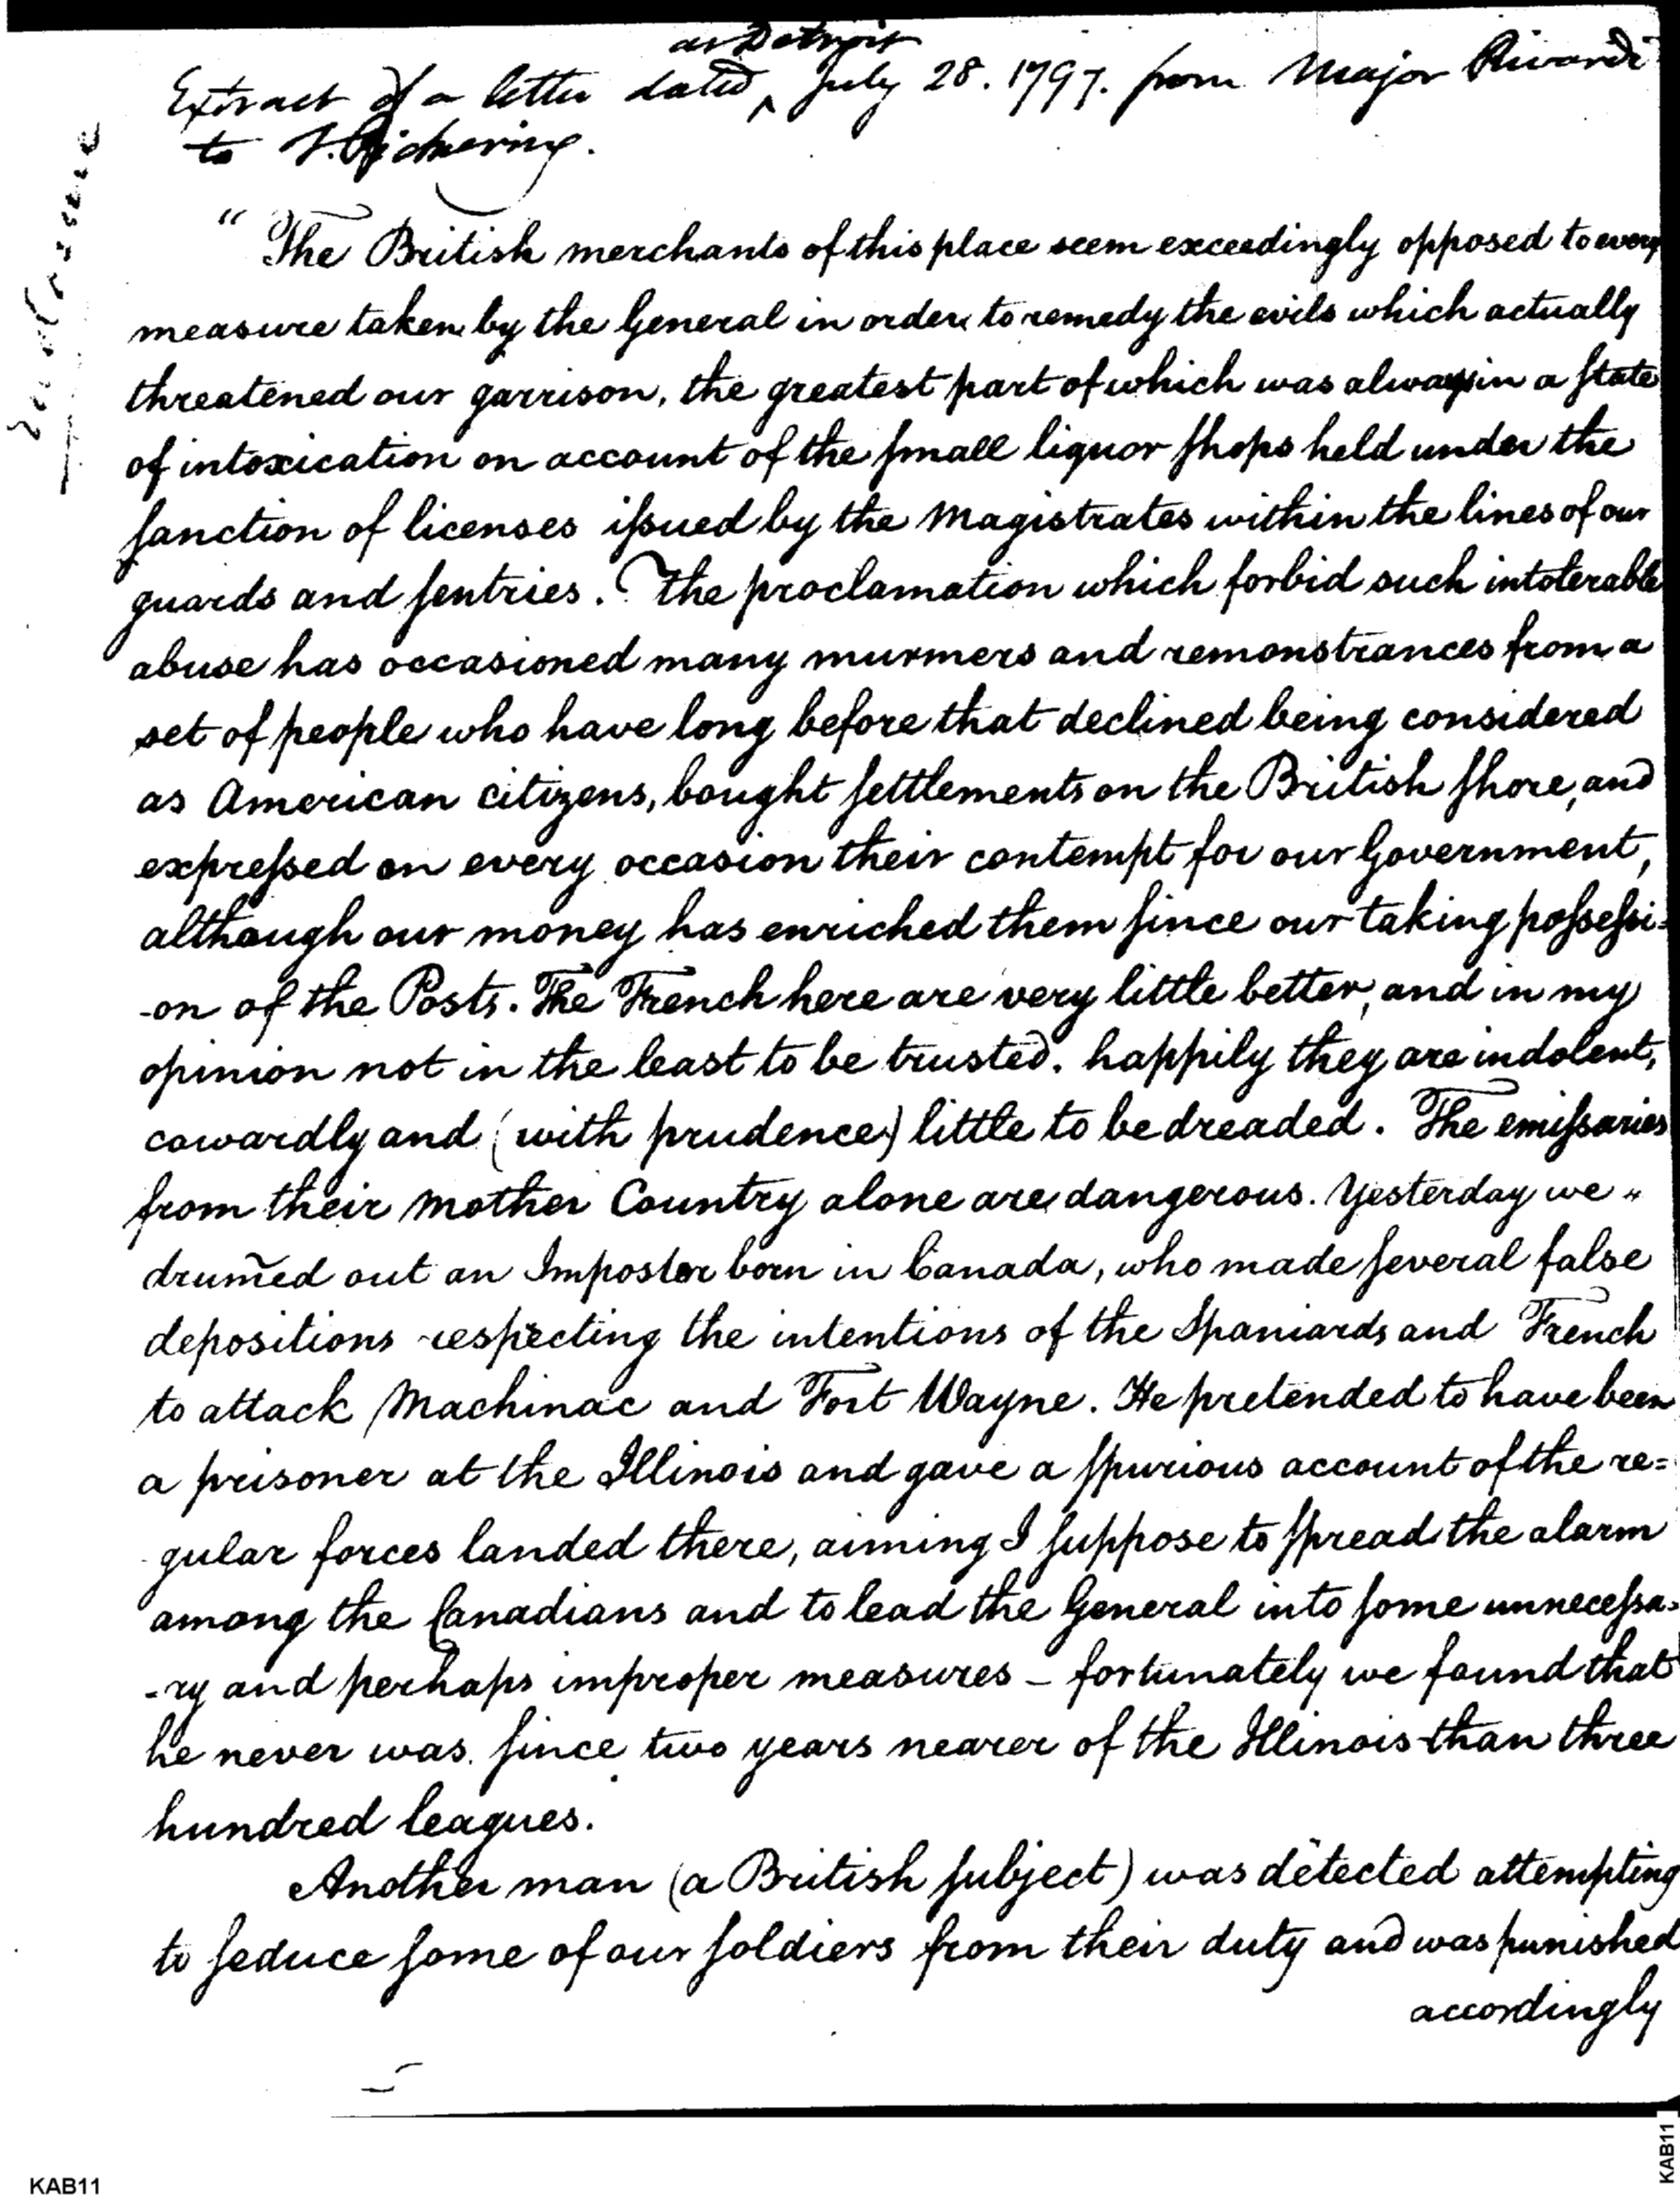 at Detroit
Extract of a letter dated ^ July 28. 1797. from Major Rivardi
to T. Pickering.
" The British merchants of this place seem exceedingly opposed to every
measure taken by the General in order to remedy the evils which actually
threatened our garrison, the greatest part of which was always in a state
of intoxication on account of the small liquor shops held under the
sanction of licenses issued by the Magistrates within the lines of our
guards and sentries. The proclamation which forbid such intolerable
abuse has occasioned many murmers and remonstrances from a
set of people who have long before that declined being considered
as American citizens, bought settlements on the British shore, and
expressed on every occasion their contempt for our Government,
although our money has enriched them since our taking possessi=
-on of the Posts. The French here are very little better, and in my
opinion not in the least to be trusted. happily they are indolent,
cowardly and (with prudence) little to be dreaded. The emissaries
from their Mother Country alone are dangerous. Yesterday we "
drum̄ed out an Impostor born in Canada, who made several false
depositions respecting the intentions of the Spaniards and French
to attack Machinac and Fort Wayne. He pretended to have been
a prisoner at the Illinois and gave a spurious account of the re=
gular forces landed there, aiming I suppose to spread the alarm
among the Canadians and to lead the General into some unnecessa=
-ry and perhaps improper measures – fortunately we found that
he never was since two years nearer of the Illinois than three
hundred leagues.
Another man (a British subject) was detected attempting
to seduce some of our soldiers from their duty and was punished
accordingly
KAB11
KAB11